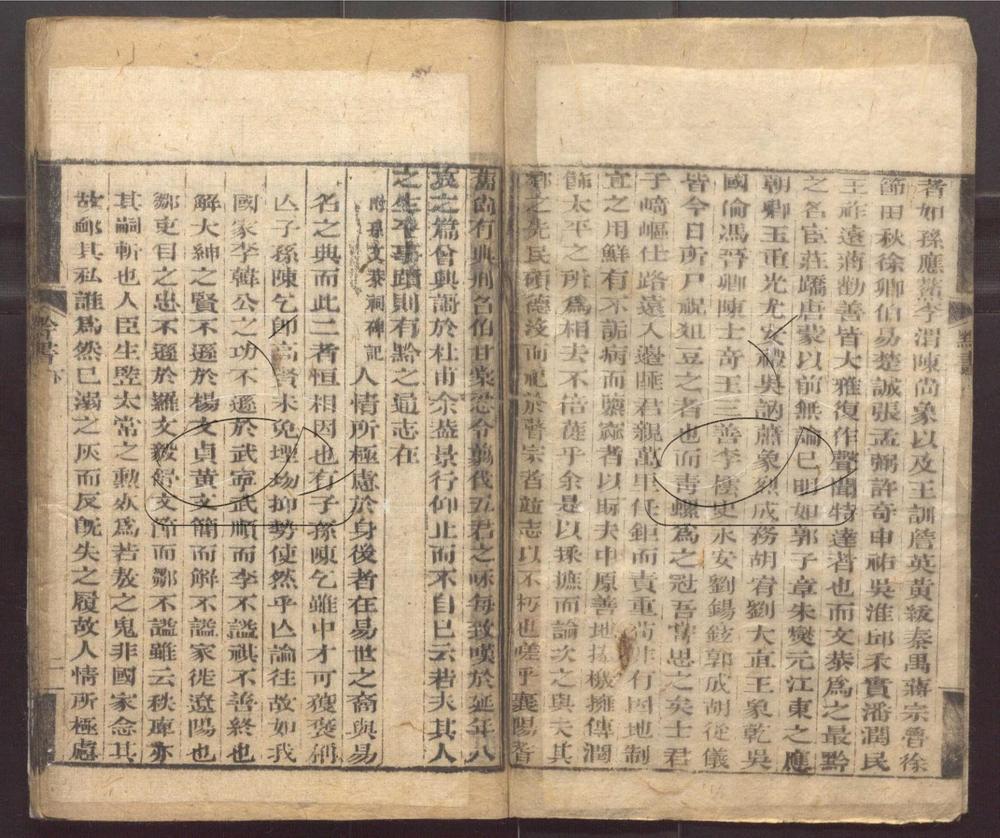 者如孫應鰲李渭陳尚象以及王訓詹英黃紱秦禺蔣宗魯徐
節田秋徐卿伯易楚誠張孟弼許奇申祐吳淮邱禾實潘潤民
王祚遠蔣勸善皆大雅復作聲聞特達者也而文恭爲之最黔
之名宦莊蹻唐蒙以前無論已明如郭子章朱燮元江東之應
朝卿王重光尤安禮吳訥蕭象烈成務胡宥劉大直王象乾吳
國倫馮晉卿陳士奇王三善李橒史永安劉錫鉉郭成胡從儀
皆今日所尸祝俎豆之者也而青螺爲之冠吾嘗思之矣士君
子崎嶇仕路遠入邊陲君親萬里任鉅而責重苟非行因地制
宜之用鮮有不詬病而顛躓者以眎夫中原善地據機擁傳潤
飾太平之所爲相去不倍蓰乎余是以採摭而論次之與夫其
鄉之先民碩德沒而祀於瞽宗者竝志以不朽也嗟乎襄陽耆
舊尚有典刑名伯甘棠恐令翦伐五君之咏每致嘆於延年八
哀之篇曾興謌於杜甫余葢景行仰止而不自已云若夫其人
之生卒事蹟則有黔之通志在
附 孫文恭祠碑記
人情所極慮於身後者在易世之裔與易
名之典而此二者恒相因也有子孫陳乞雖中才可獲褒稱
亾子孫陳乞卽高賢未免堙場抑勢使然乎亾論往故如我
國家李韓公之功不遜於武寧武順而李不謚祺不善終也
解大紳之賢不遜於楊文貞黃文簡而解不謚家徙遼陽也
鄒東目之忠不遜於羅文毅舒文節而鄒不謚雖云秩庳亦
其嗣斬也人臣生豎太常之勳歿爲若敖之鬼非國家念其
故卹其私誰爲然已溺之灰而反旣失之履故人情所極慮
黔書 下